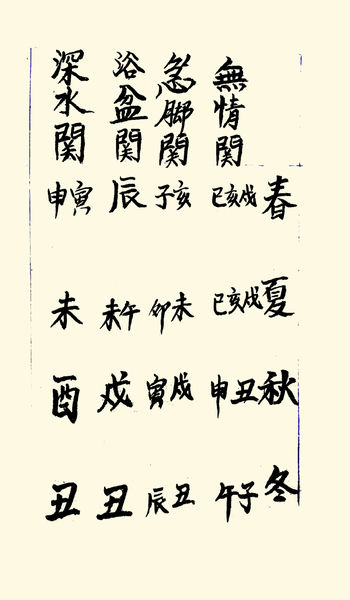 春 夏 秋 冬
無情関 戌亥巳 戌亥巳 丑申 子午
急脚関 亥子 未卯 戌寅 丑辰
浴盆関 辰 午未 戌 丑
深水関 寅申 未 酉 丑